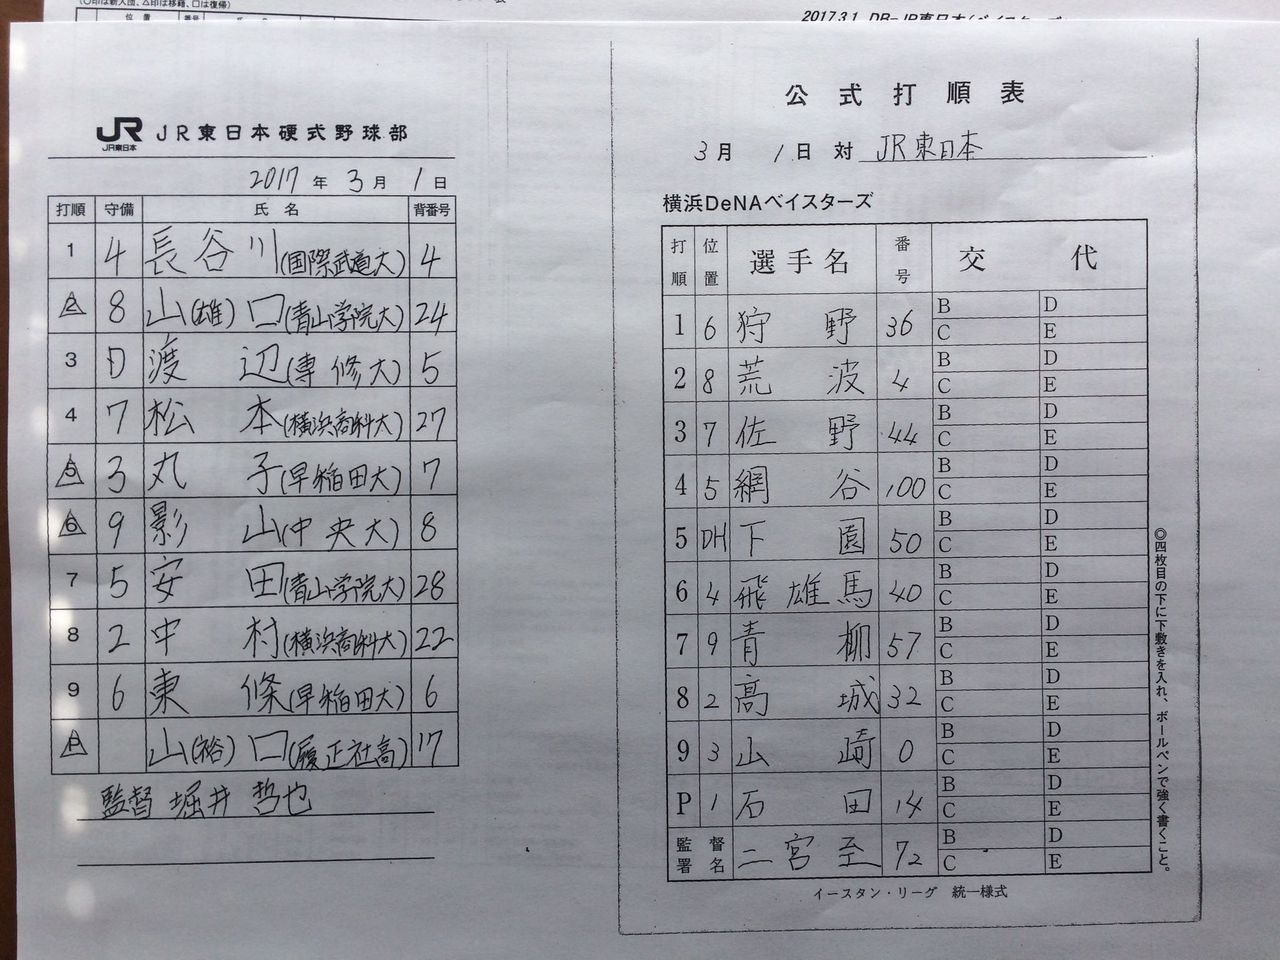 (○印は新入団、△印は移籍、□は復帰)
位置 番号
2017.3.1 DB-JR東日本
JR JR東日本硬式野球部
JR東日本
2017年 3月 1日
打順 守備 氏名 背番号
1 4 長谷川(国際武道大) 4
2 8 山(雄)口(青山学院大) 24
3 D 渡辺(専修大) 5
4 7 松本(横浜商科大) 27
5 3 丸子(早稲田大) 7
6 9 影山(中央大) 8
7 5 安田(青山学院大) 28
8 2 中村(横浜商科大) 22
9 6 東條(早稲田大) 6
P 山(裕)口(履正社高) 17
監督 堀井 哲也
公式打順表
3月 1日 対 JR東日本
横浜DeNAベイスターズ
打順 位置 選手名 番号 交代
1 6 狩野 36 B D C E
2 8 荒波 4 B D C E
3 7 佐野 44 B D C E
4 5 網谷 100 B D C E
5 DH 下園 50 B D C E
6 4 飛雄馬 40 B D C E
7 9 青柳 57 B D C E
8 2 高城 32 B D C E
9 3 山崎 0 B D C E
P 1 石田 14 B D C E
監督署名 二宮至 72 B D C E
イースタン・リーグ 統一様式
◎四枚目の下に下敷きを入れ、ボールペンで強く書くこと。